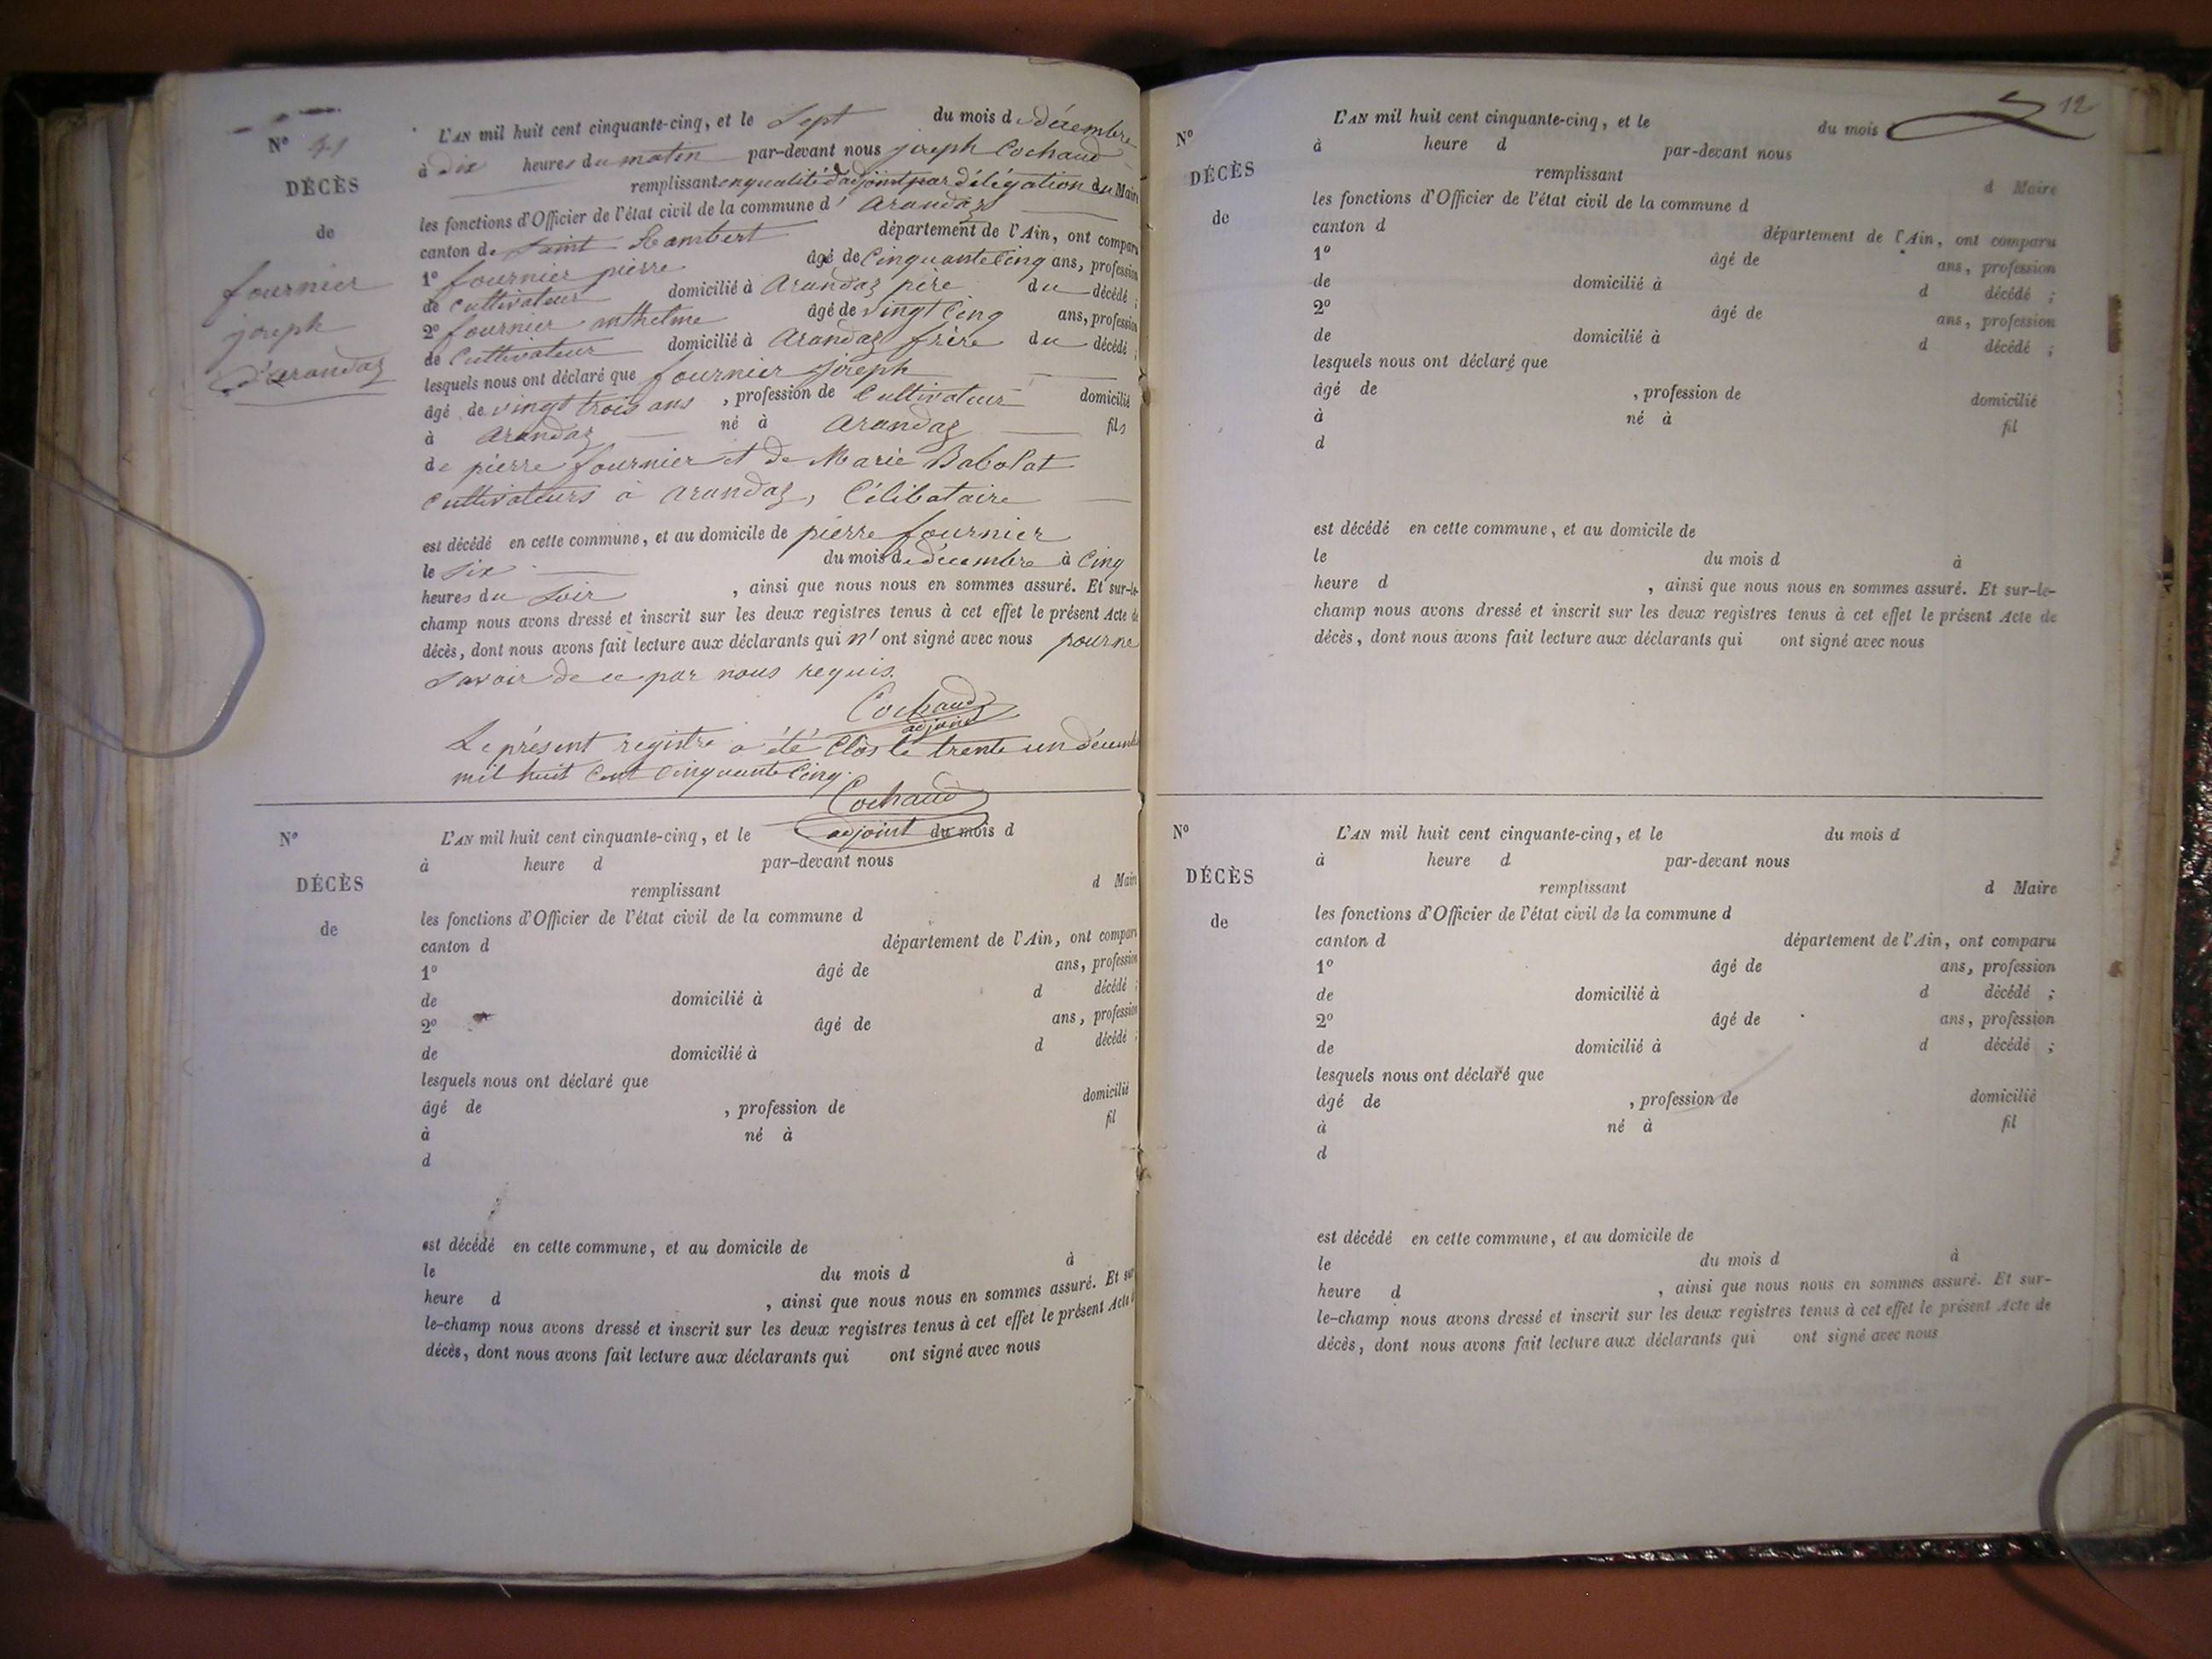 N° 41
DÉCÈS
de
fournier
joseph
d'arandas
L'AN mil huit cent cinquante-cinq, et le Sept du mois de décembre
à dix heures du matin par-devant nous joseph Cochaud
remplissant en qualité d'adjoint par délégation du Maire
les fonctions d'Officier de l'état civil de la commune d' arandas
canton de saint Rambert département de l'Ain, ont comparu
1° fournier pierre âgé de Cinquante Cinq ans, profession
de Cultivateur domicilié à Arandas père du décédé ;
2° fournier anthelme âgé de vingt Cinq ans, profession
de Cultivateur domicilié à Arandas frère du décédé ;
lesquels nous ont déclaré que fournier joseph
âgé de vingt trois ans , profession de Cultivateur domicilié
à Arandas né à Arandas fils
de pierre fournier et de Marie Babolat
Cultivateurs à arandas, Célibataire
est décédé en cette commune, et au domicile de pierre fournier
le Six du mois de décembre à Cinq
heures du Soir , ainsi que nous nous en sommes assuré. Et sur-le-
champ nous avons dressé et inscrit sur les deux registres tenus à cet effet le présent Acte de
décès, dont nous avons fait lecture aux déclarants qui n' ont signé avec nous pour ne
Savoir de ce par nous requis.
Cochaud
adjoint
Le présent registre a été Clos le trente un décembre
mil huit Cent Cinquante Cinq.
Cochaud
adjoint
N°
DÉCÈS
de
L'AN mil huit cent cinquante-cinq, et le du mois d
à heure d par-devant nous
remplissant d Maire
les fonctions d'Officier de l'état civil de la commune d
canton d département de l'Ain, ont comparu
1° âgé de ans, profession
de domicilié à d décédé ;
2° âgé de ans, profession
de domicilié à d décédé ;
lesquels nous ont déclaré que
âgé de , profession de domicilié
à né à fil
d
est décédé en cette commune, et au domicile de
le du mois d à
heure d , ainsi que nous nous en sommes assuré. Et sur
le-champ nous avons dressé et inscrit sur les deux registres tenus à cet effet le présent Acte d
décès, dont nous avons fait lecture aux déclarants qui ont signé avec nous
12
N°
DÉCÈS
de
L'AN mil huit cent cinquante-cinq, et le du mois
à heure d par-devant nous
remplissant d Maire
les fonctions d'Officier de l'état civil de la commune d
canton d département de l'Ain, ont comparu
1° âgé de ans, profession
de domicilié à d décédé ;
2° âgé de ans, profession
de domicilié à d décédé ;
lesquels nous ont déclaré que
âgé de , profession de domicilié
à né à fil
d
est décédé en cette commune, et au domicile de
le du mois d à
heure d , ainsi que nous nous en sommes assuré. Et sur-le-
champ nous avons dressé et inscrit sur les deux registres tenus à cet effet le présent Acte de
décès, dont nous avons fait lecture aux déclarants qui ont signé avec nous
N°
DÉCÈS
de
L'AN mil huit cent cinquante-cinq, et le du mois d
à heure d par-devant nous
remplissant d Maire
les fonctions d'Officier de l'état civil de la commune d
canton d département de l'Ain, ont comparu
1° âgé de ans, profession
de domicilié à d décédé ;
2° âgé de ans, profession
de domicilié à d décédé ;
lesquels nous ont déclaré que
âgé de , profession de domicilié
à né à fil
d
est décédé en cette commune, et au domicile de
le du mois d à
heure d , ainsi que nous nous en sommes assuré. Et sur-
le-champ nous avons dressé et inscrit sur les deux registres tenus à cet effet le présent Acte de
décès, dont nous avons fait lecture aux déclarants qui ont signé avec nous